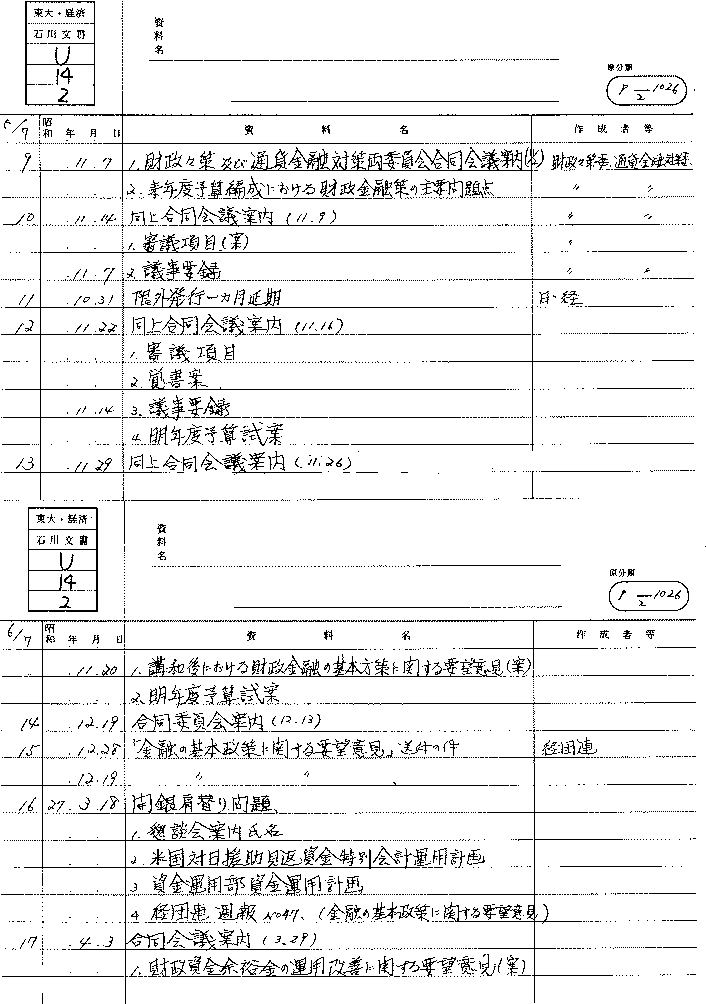 東大・経済
石川文書
U
14
2
資料名
原分類
P 2-1026
5/7 昭和 年 月 日 資料名 作成者等
9 . 11 . 7 1. 財政々策及び通貨金融対策両委員会合同会議案内 財政々策委、通貨金融対策
2. 来年度予算編成における財政金融策の主要問題点 〃 〃
10 . 11 . 14 同上合同会議案内 (11.9) 〃 〃
1. 審議項目(案) 〃
. 11 . 7 2. 議事要録 〃 〃
11 . 10 . 31 限外発行一カ月延期 日・経
12 . 11 . 22 同上合同会議案内 (11.16)
1. 審議項目
2. 覚書案
. 11 . 14 3. 議事要録
4. 明年度予算試案
13 . 11 . 29 同上合同会議案内 (11.26)
東大・経済
石川文書
U
14
2
資料名
原分類
P 2-1026
6/7 昭和 年 月 日 資料名 作成者等
. 11 . 20 1. 講和後における財政金融の基本方策に関する要望意見(案)
2. 明年度予算試案
14 . 12 . 19 合同委員会案内 (12.13)
15 . 12 . 28 「金融の基本政策に関する要望意見」送付の件 経団連
. 12 . 19 〃 〃
16 27 . 3 . 18 開銀肩替り問題
1. 懇談会案内氏名
2. 米国対日援助見返資金特別会計運用計画
3. 資金運用部資金運用計画
4. 経団連週報 No47、(金融の基本政策に関する要望意見)
17 . 4 . 3 合同会議案内 (3.29)
1. 財政資金余裕金の運用改善に関する要望意見(案)